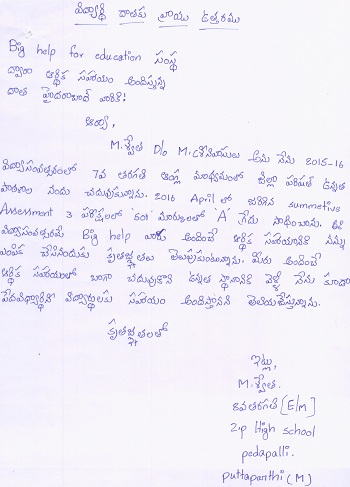 విద్యార్థి దాతకు వ్రాయు ఉత్తరము
Big help for education సంస్థ
ద్వారా ఆర్థిక సహాయం అందిస్తున్న
దాత హైదరాబాద్ వారికి!
ఆర్యా,
M. శ్వేత D/o M. శ్రీనివాసులు అను నేను 2015-16
విద్యాసంవత్సరంలో 7వ తరగతి ఆంగ్ల మాధ్యమంలో జిల్లా పరిషత్ ఉన్నత
పాఠశాల నందు చదువుకున్నాను. 2016 April లో జరిగిన summative
Assessment 3 పరీక్షలలో 501 మార్కులతో 'A' గ్రేడు సాధించాను. ఈ
విద్యాసంవత్సరమే Big help వారు అందించే ఆర్థిక సహాయానికి నన్ను
ఎంపిక చేసినందుకు కృతజ్ఞతలు తెలుపుకుంటున్నాను. మీరు అందించే
ఆర్థిక సహాయంలో బాగా చదువుకొని ఉన్నత స్థానానికి వెళ్లి నేను కూడా
పేదవిద్యార్థినీ విద్యార్థులకు సహాయం అందిస్తానని తెలియజేస్తున్నాను.
కృతజ్ఞతలతో
ఇట్లు,
M. శ్వేత.
8వ తరగతి [E/M]
Z.p High school
pedapalli.
puttaparthi (M)